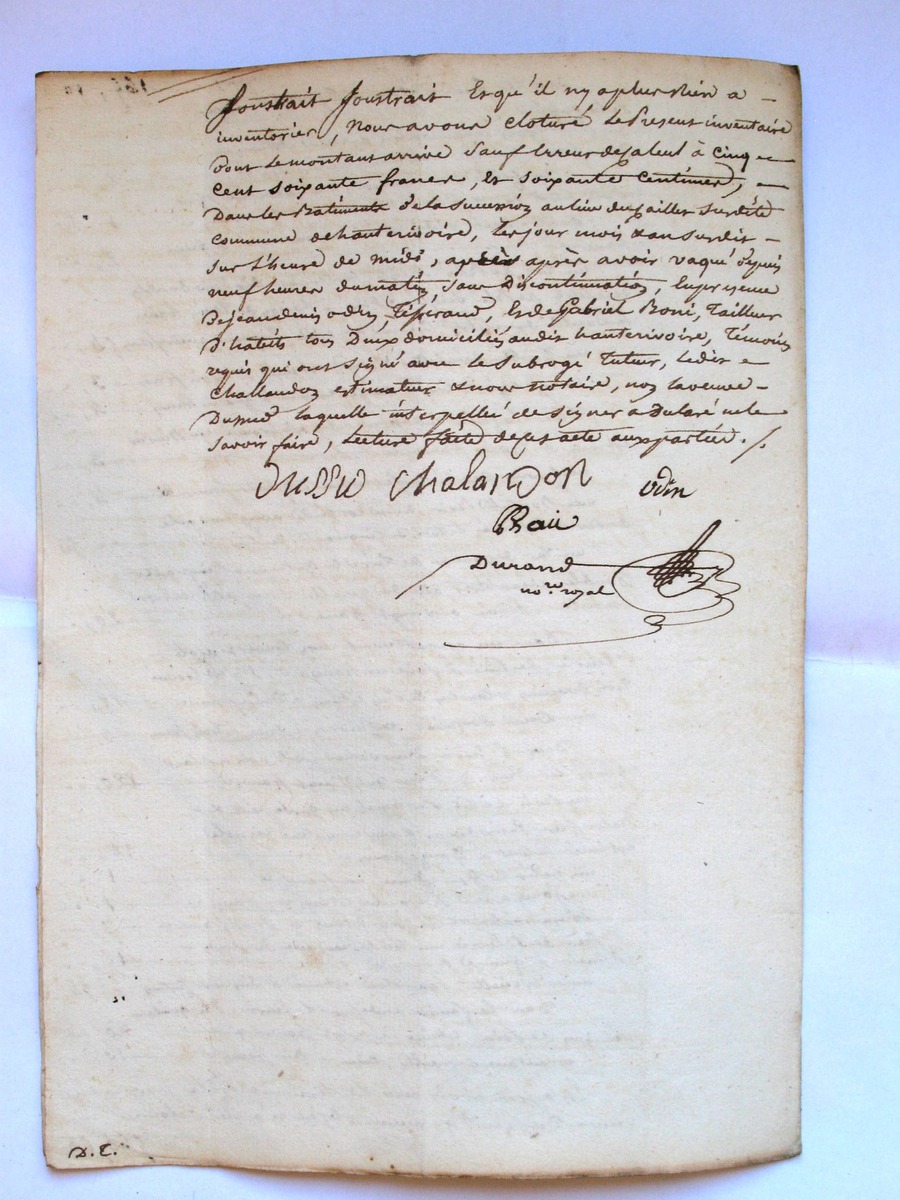 soustrait soustrait Et qu'il ny a plus Rien a -
inventorier, Nous avons cloturé le Present inventaire
dont le montant arrive sauf Erreur de calcul à cinq
cent soixante francs, et soixante centimes, -
Dans les Batiments de la succession au lieu du sailler surdite
commune de hauterivoire, les jour mois & an susdit -
sur l'heure de midi, après avoir vaqué depuis
neuf heures du matin sans Discontinuation, En presence
De jean denis odin, Tisserand, Et de Gabriel Boni, Tailleur
d'habits tous Deux domiciliés audit hauterivoire, Témoins
requis qui ont signé avec le Subrogé Tuteur, ledit
Challandon estimateur & nous notaire, non la veuve -
laquelle interpellée de signer a declaré ne le
savoir faire, Lecture faite de cet acte aux parties. /.
chalandon odin
Durand
no.re royal
D.T.